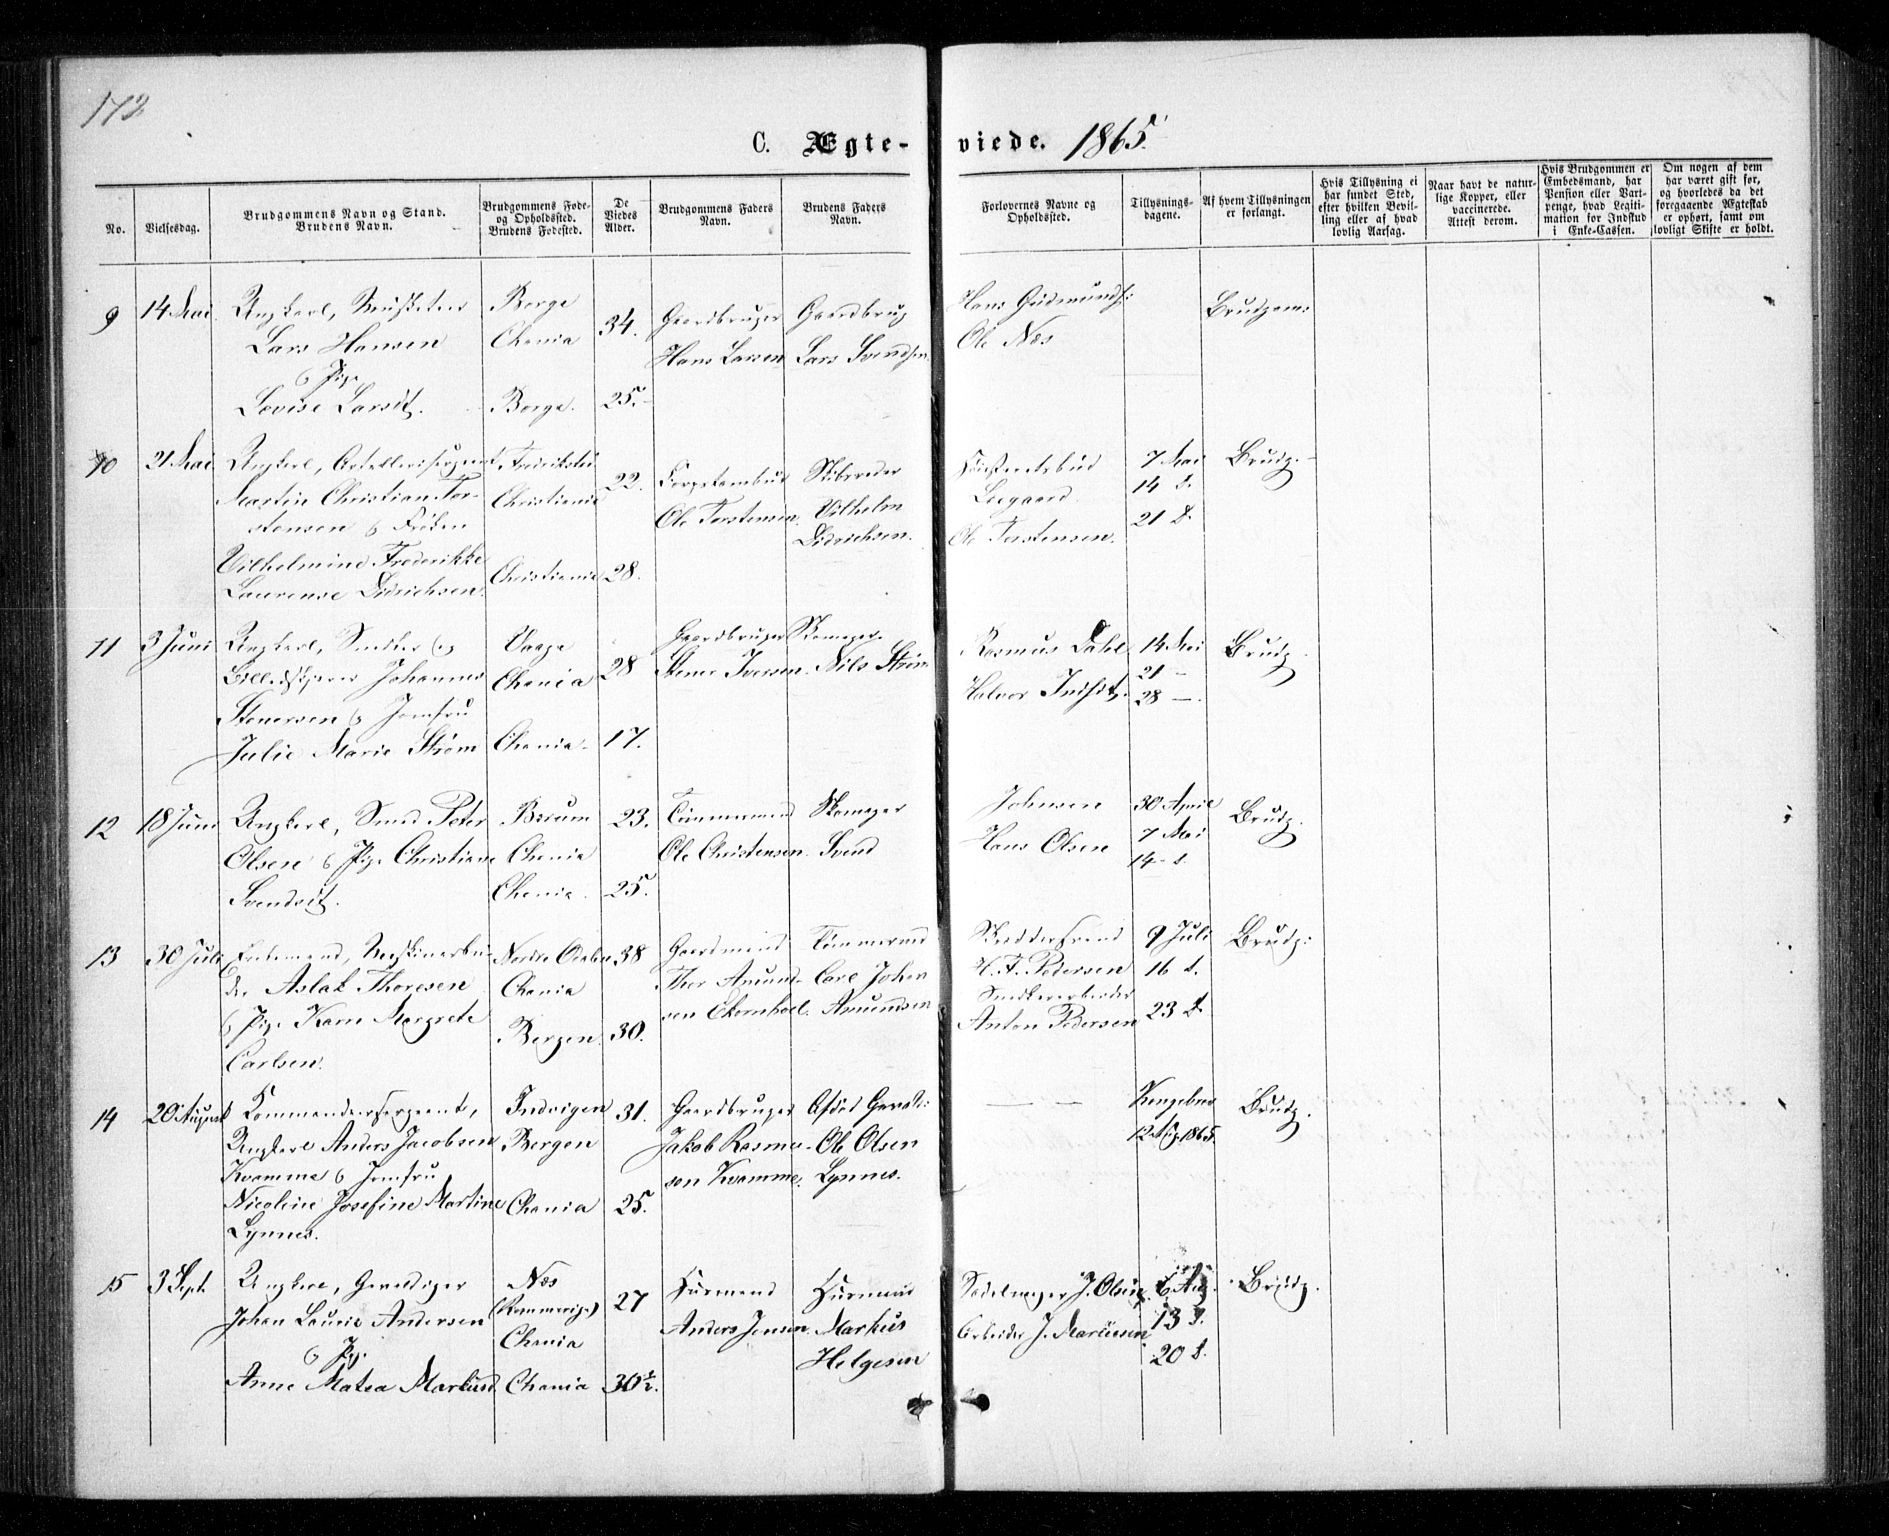 172
C. Ægte- viede. 1865.
No.
Vielsesdag.
Brudgommens Navn og Stand.
Brudens Navn.
Brudgommens Føde-
og Opholdssted.
Brudens Fødested.
De
Viedes
Alder.
Brudgommens Faders
Navn.
Brudens Faders
Navn.
Forlovernes Navne og
Opholdssted.
Tillysnings-
dagene.
Af hvem Tillysningen
er forlangt.
Hvis Tillysning ei
har fundet Sted,
efter hvilken Bevil-
ling eller af hvad
lovlig Aarsag.
Naar havt de natur-
lige Kopper, eller
vaccinerede.
Attest derom.
Hvis Brudgommen er
Embedsmand, har
Pension eller Vart-
penge, hvad Legiti-
mation for Indskud
i Enke-Cassen.
Om nogen af dem
har været gift før,
og hvorledes da det
foregaaende Ægteskab
er ophørt, samt om
lovligt Skifte er holdt.
9 14 Mai Ungkarl, Musketeer Borge 34. Gaardbruger Gaardbrug
Lars Hansen Chania Hans Larsen Lars Svendsen
& Pige
Lovise Larsdt. Borge. 25.
Hans Gudmunds: Brudgom:
Ole Næs
10 21 Mai Ungkarl, Artillerisergeant Fredriksta 22. Skibsreder
Martin Christian Tor- Christiania Ole Torstensen. Vilhelm
stensen & Frøken Didrichsen.
Vilhelmine Frederikke Christiania 28.
Laurense Didrichsen.
7 Mai Brudg.
Leegaard 14 d.
Ole Torstensen. 21 d.
11 3 Juni Ungkarl, Snedker og Vaage 28 Gaardbruger Skomager
Billedskjærer Johannes Chania Stener Iversen. Nils Strøm
Stenersen & Jomfru
Julie Marie Strøm Chania. 17.
Rasmus Dahl 14 Mai Brudg.
21 —
Halvor 28 —
12 18 Juni Ungkarl, Smed Peter Bærum 23. Tømmermand Skomager
Olsen & Pige Christiane Chania Ole Christensen. Svend
Svendsdt. Chania. 25.
Johnsen 30 April Brudg.
Hans Olsen 7 Mai
14 d.
13 30 Juli Enkemand, Maskinarbei- Nordre Odalen 38 Gaardmand Tømmermd
der Aslak Thoresen Chania Thor Amund- Carl Johan
& Pige Karn Margrete Bergen. 30. sen Ekornhoel. Amundsen
Carlsen.
9 Juli Brudg:
H. F. Pedersen 16 d.
Snedkerarbeider
Anton Pedersen 23 d.
14 20 August Kommandeersergeant, Indvigen 31. Gaardbruger Afdøde
Ungkarl Anders Jacobsen Bergen Jakob Rasmu- Ole Olsen
Kvamme & Jomfru sen Kvamme. Lynnes.
Nicoline Josefine Martine Chania 25.
Lynnes.
— — Kongebrev Brudg.
12 Aug. 1865.
15 3 Sept. Ungkarl, Gevaldiger Næs 27 Huusmand Huusmand
Johan Lauritz Andersen (Rommerige) Anders Jensen. Markus
& Pige Chania Helgesen
Anne Matea Markusd. Chania 30½.
Sadelmager J. Olsen. 6 Aug. Brudg.
Arbeider J. Martinsen 13 d.
20 d.